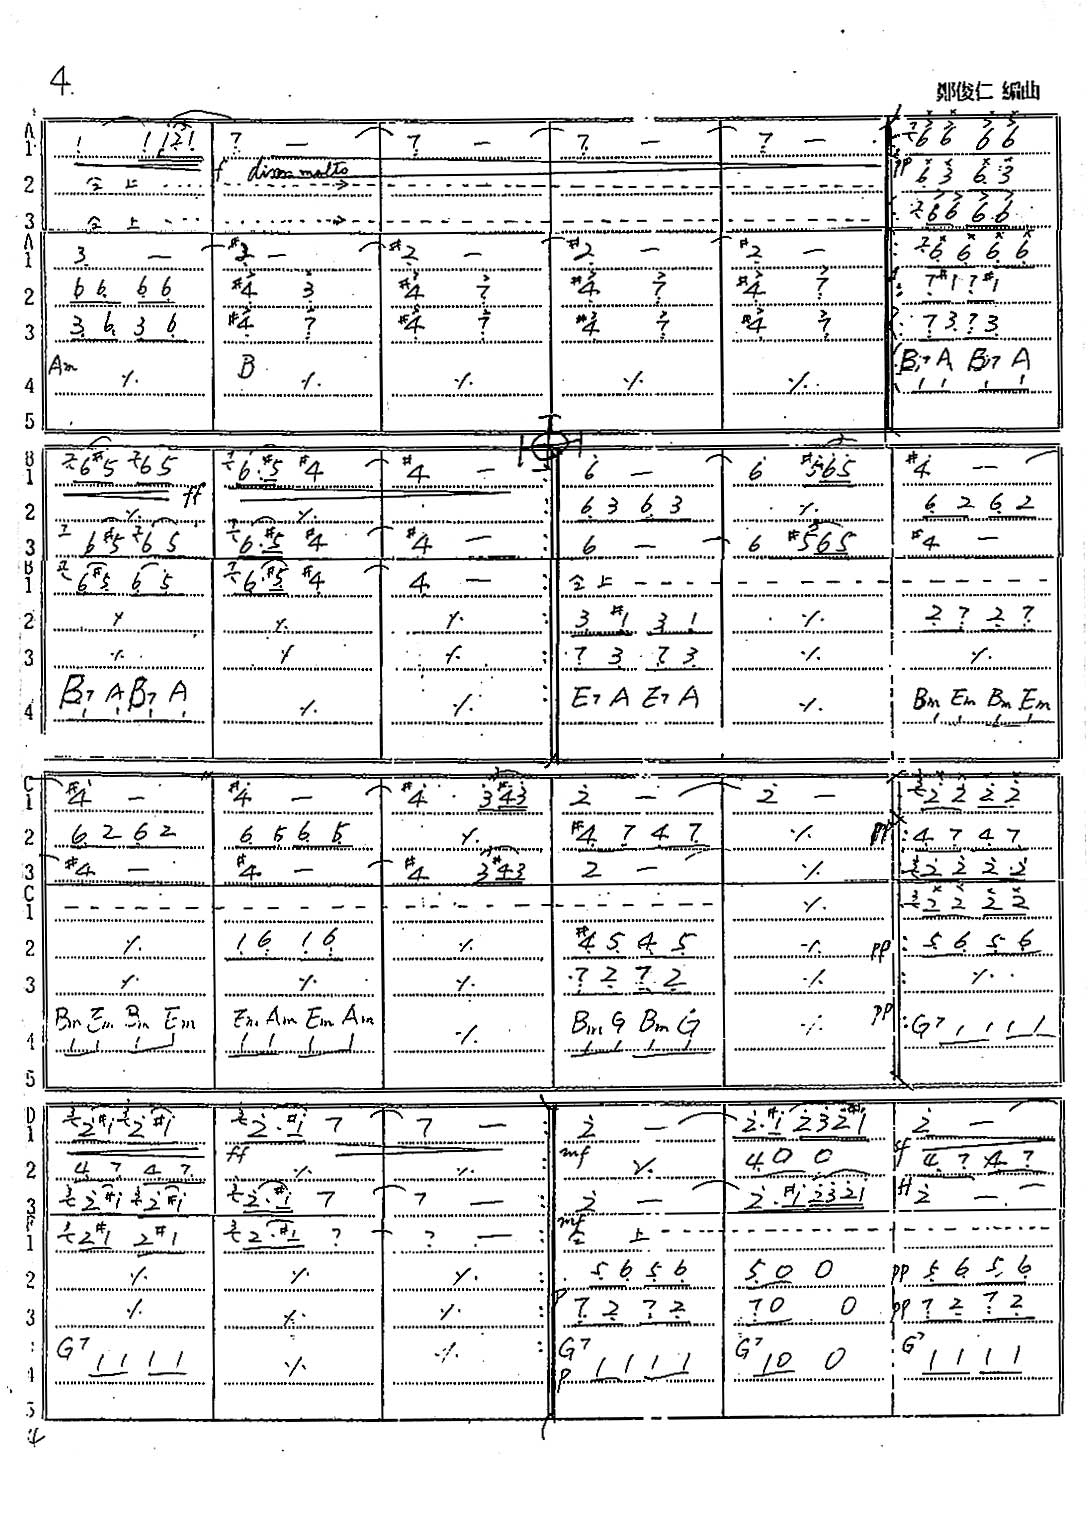 4.
鄭俊仁 編曲
A
1 1 1 1 2 1 7 — 7 — 7 — 7 — 6 6 6 6
f dim molto
2 仝 上 pp 6 3 6 3
3 仝 上 6 6 6 6
A
1 3 — #2 — #2 — #2 — #2 — 6 6 6 6
2 6 6 6 6 #4 3 #4 7 #4 7 #4 7 7 #1 7 #1
3 3 6 3 6 #4 7 #4 7 #4 7 #4 7 7 3 7 3
4 Am ٪ B ٪ ٪ ٪ ٪ B7 A B7 A
5
B
1 6 #5 6 5 6 · #5 #4 #4 — 6 — 6 #5 6 5 #4 —
ff
2 ٪ ٪ 6 3 6 3 ٪ 6 2 6 2
3 6 #5 6 5 6 · #5 #4 #4 — 6 — — 6 #5 6 5 #4 —
B
1 6 #5 6 5 6 · #5 #4 4 — 仝 上
2 ٪ ٪ ٪ 3 #1 3 1 ٪ 2 7 2 7
3 ٪ ٪ ٪ 7 3 7 3 ٪ ٪
4 B7 A B7 A ٪ ٪ E7 A E7 A ٪ Bm Em Bm Em
C
1 #4 — #4 — #4 · 3 #4 3 2 — 2 — 2 2 2 2
2 6 2 6 2 6 5 6 5 ٪ #4 7 4 7 ٪ pp 4 7 4 7
3 #4 — #4 — #4 3 #4 3 2 — ٪ 2 2 2 2
C
1 ٪ 2 2 2 2
2 ٪ 1 6 1 6 ٪ #4 5 4 5 ٪ pp 5 6 5 6
3 ٪ ٪ ٪ 7 2 7 2 ٪ ٪
4 Bm Em Bm Em Em Am Em Am ٪ Bm G Bm G ٪ pp G7 1 1 1 1
5
D
1 2 #1 2 #1 2 · #1 7 7 — 2 — 2 · #1 2 3 2 #1 2 —
ff mf sf
2 4 7 4 7 ٪ ٪ ٪ 4 0 0 4 7 4 7
3 2 #1 2 #1 2 · #1 7 7 — 2 — 2 · #1 2 3 2 1 2 —
mf
1 2 #1 2 #1 2 · #1 7 7 — 仝 上
2 ٪ ٪ ٪ 5 6 5 6 5 0 0 pp 5 6 5 6
3 ٪ ٪ ٪ p 7 2 7 2 7 0 0 pp 7 2 7 2
4 G7 1 1 1 1 ٪ ٪ G7 1 1 1 1 G7 1 0 0 G7 1 1 1 1
p
5
4